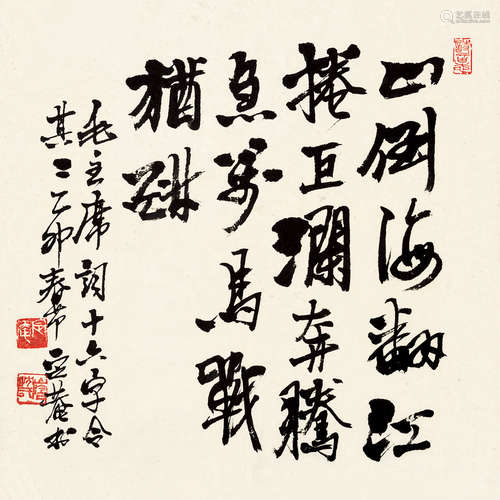 山倒海翻江
捲巨瀾奔騰
急萬馬戰
猶酣
毛主席詞十六字令
其二乙卯春